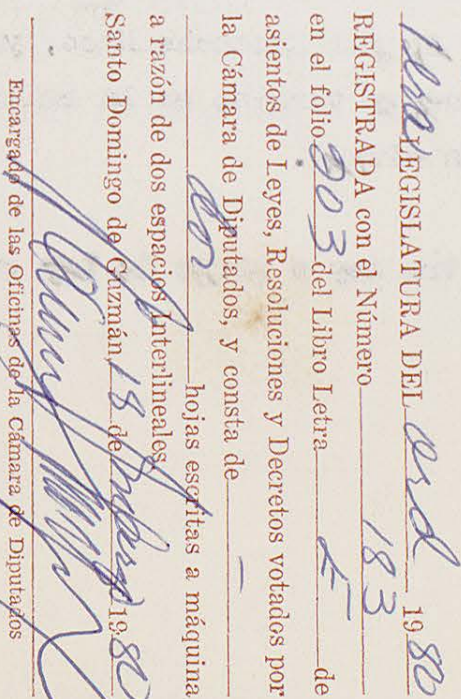 1era LEGISLATURA DEL Ord 1980
REGISTRADA con el Número 183
en el folio 203 del Libro Letra de
asientos de Leyes, Resoluciones y Decretos votados por
la Cámara de Diputados, y consta de —
dos hojas escritas a máquina
a razón de dos espacios interlineales
Santo Domingo de Guzmán, 18 de 1980
Encargado de las Oficinas de la Cámara de Diputados